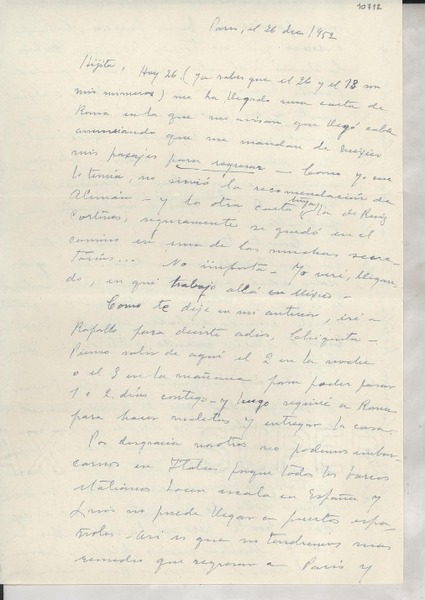 10712
Paris, el 26 dic/952
Hijita, Hoy 26 (ya sabes que el 26 y el 13 son
mis números) me ha llegado una carta de
Roma en la que me avisan que llegó cable
anunciando que me mandan de México
mis pasajes para regresar - Como yo me
lo temía, no sirvió la recomendación de
Alemán - y la otra carta tuya, la de Ruiz
Cortines, seguramente se quedó en el
camino en una de las muchas secre-
tarías... No importa - Yo veré, llegan-
do, en qué trabajo allá en México -
Como te dije en mi anterior, iré a
Rapallo para decirte adiós, Chiquita -
Pienso salir de aquí el 2 en la noche
o el 3 en la mañana para poder pasar
1 o 2 días contigo - y luego seguiré a Roma
para hacer maletas y entregar la casa.
Por desgracia nosotros no podemos embar-
carnos en Italia porque todos los barcos
italianos hacen escala en España y
Luis no puede llegar a puertos espa-
ñoles - Así es que no tendremos más
remedio que regresar a París y